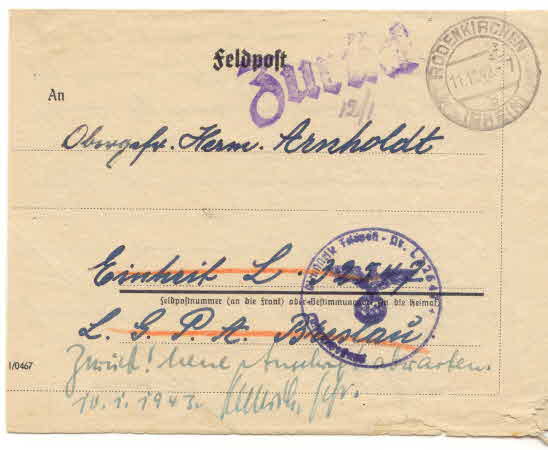 Feldpost
Zurück
RODENKIRCHEN
(RHEIN)
An
Obergefr. Herm. Arnholdt
Einheit L
Feldpostnummer (an die Front) oder Bestimmungsort (in die Heimat)
L. G. P. A. Breslau.
1/0467
Zurück! neue Anschrift abwarten.
10. 1. 1943.